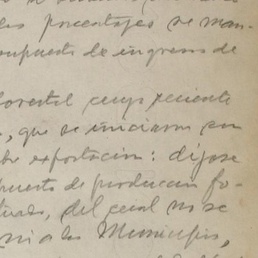 los porcentajes se man-
supuesto de ingresos de
forestal cuyo reciente
, que se iniciaron con
bre exportación: dijose
puesto de producción fo-
del cual no se
a los Municipios,